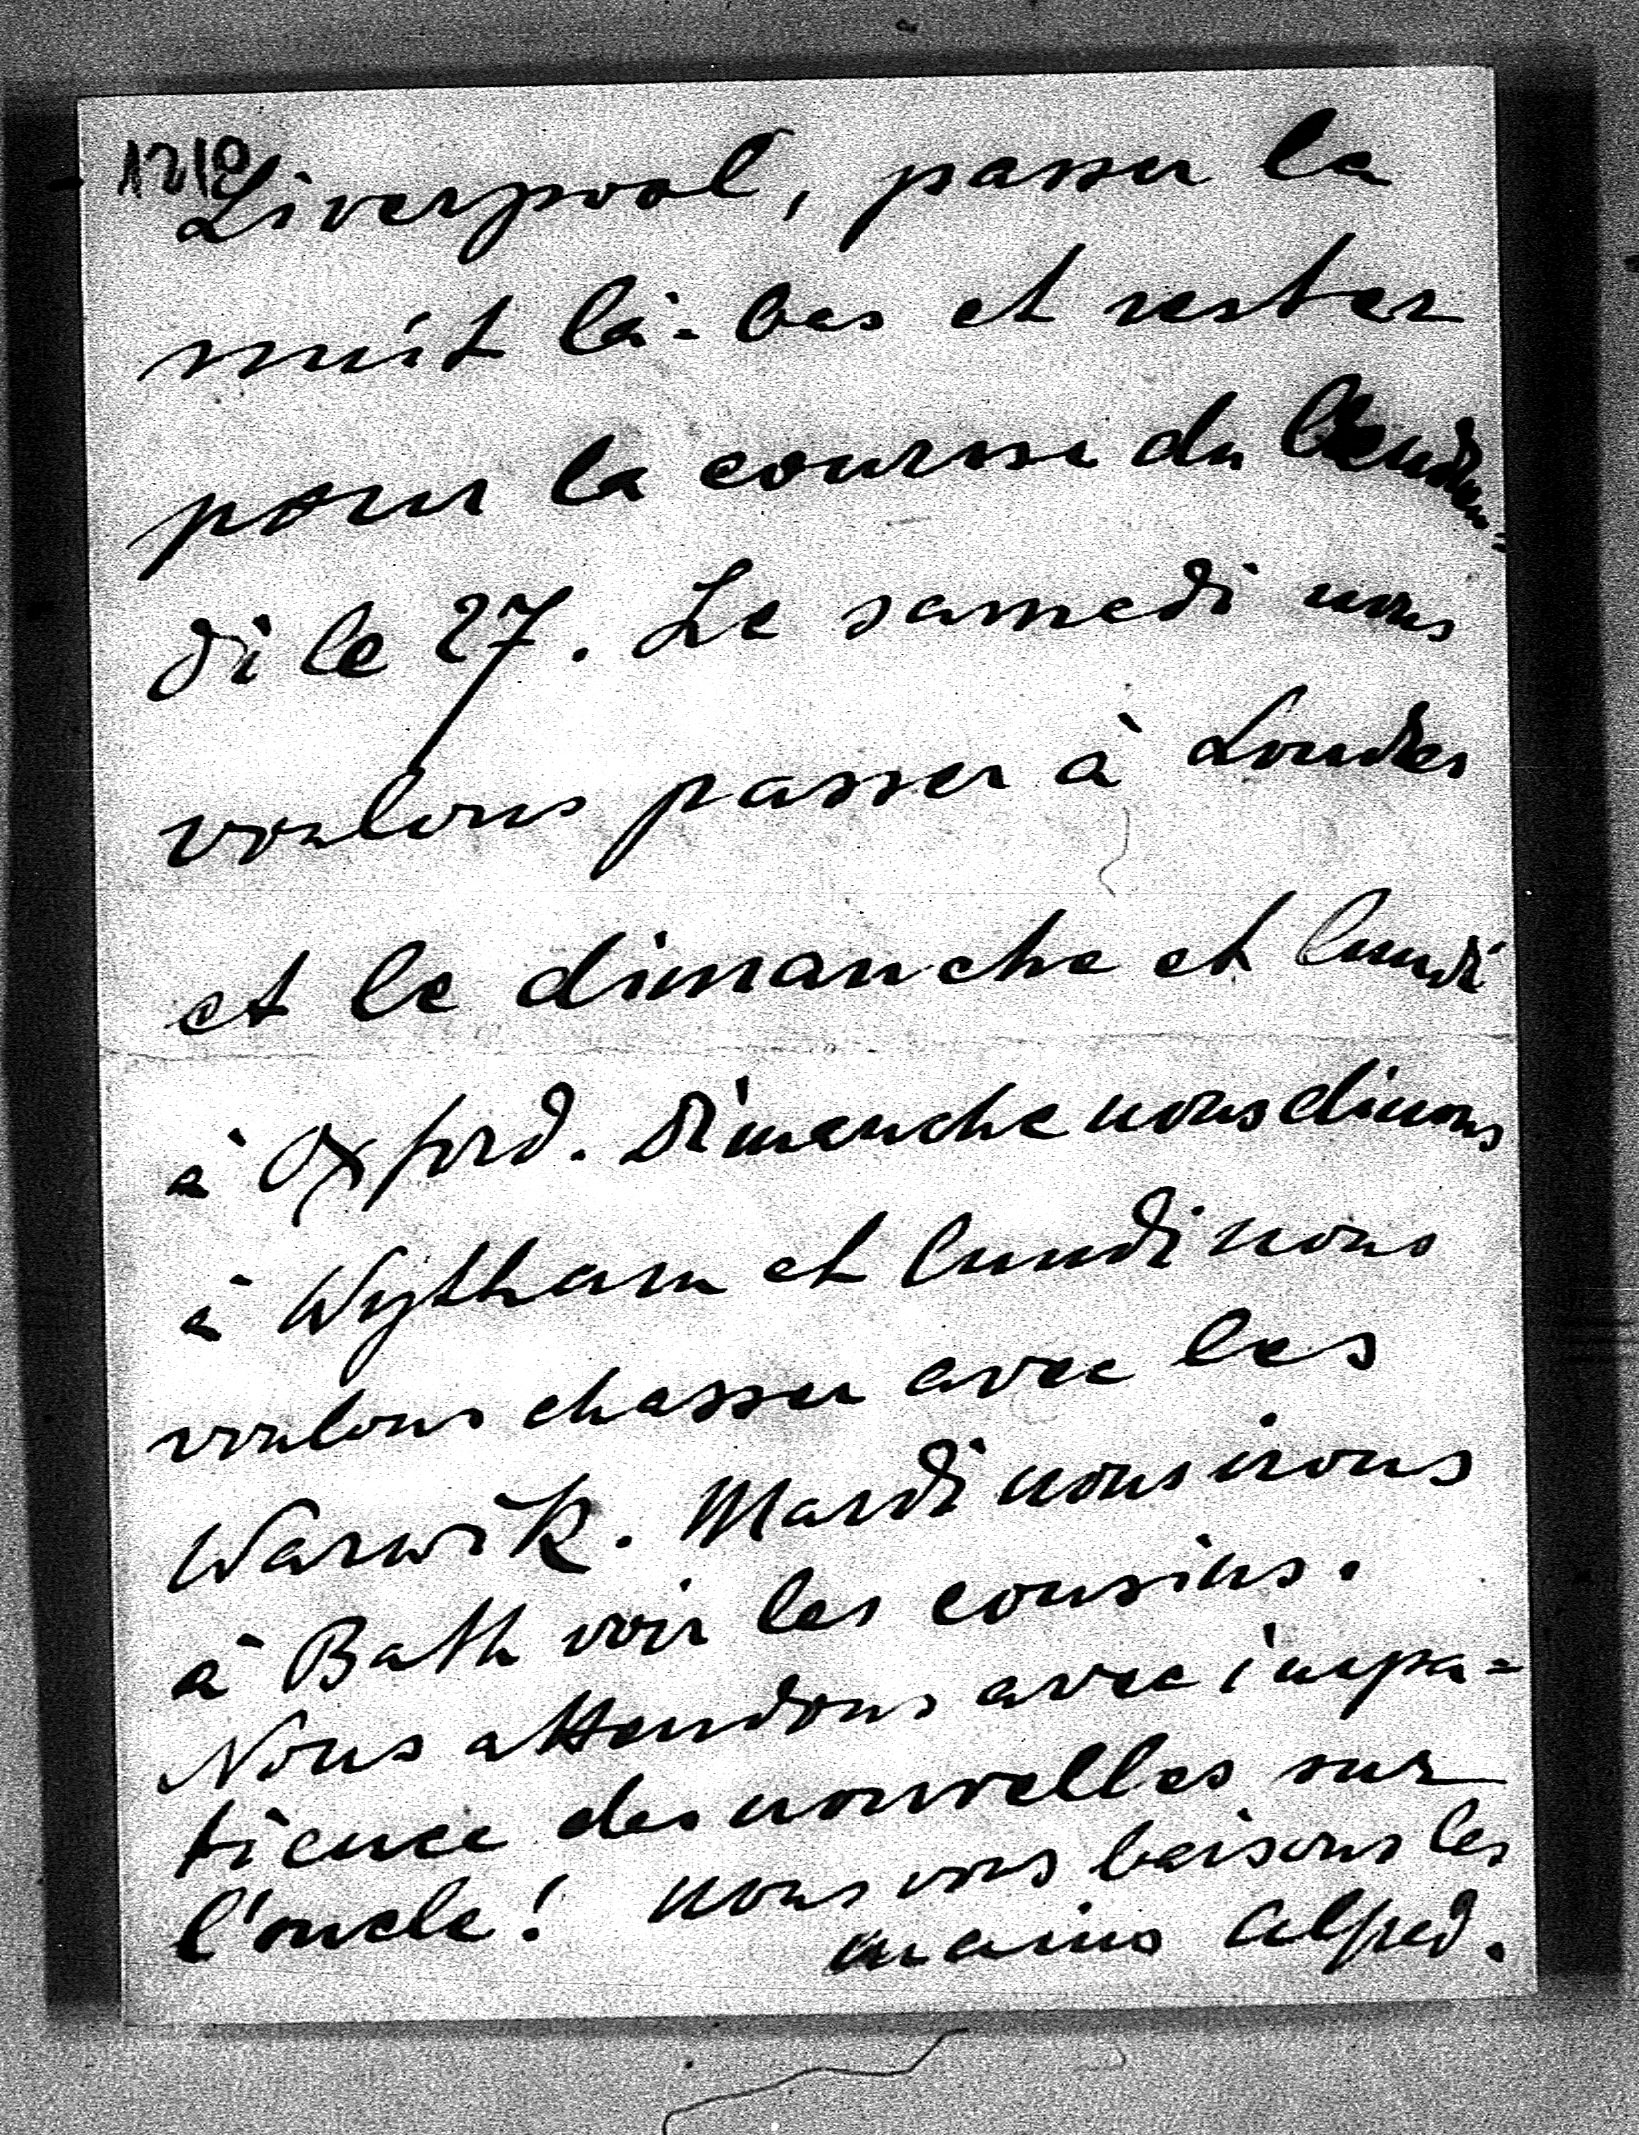 1210
Liverpool, passer la
nuit là-bas et rester
pour la course du
di le 27. Le samedi nous
voulons passer à Londres
et le dimanche et lundi
à Oxford. Dimanche nous dinons
à Wytham et lundi nous
voulons chasser avec les
Warwik. Mardi nous irons
à Bath voir les cousins.
Nous attendons avec impa=
tience des nouvelles sur
l'oncle! nous vous baisons les
mains Alfred.